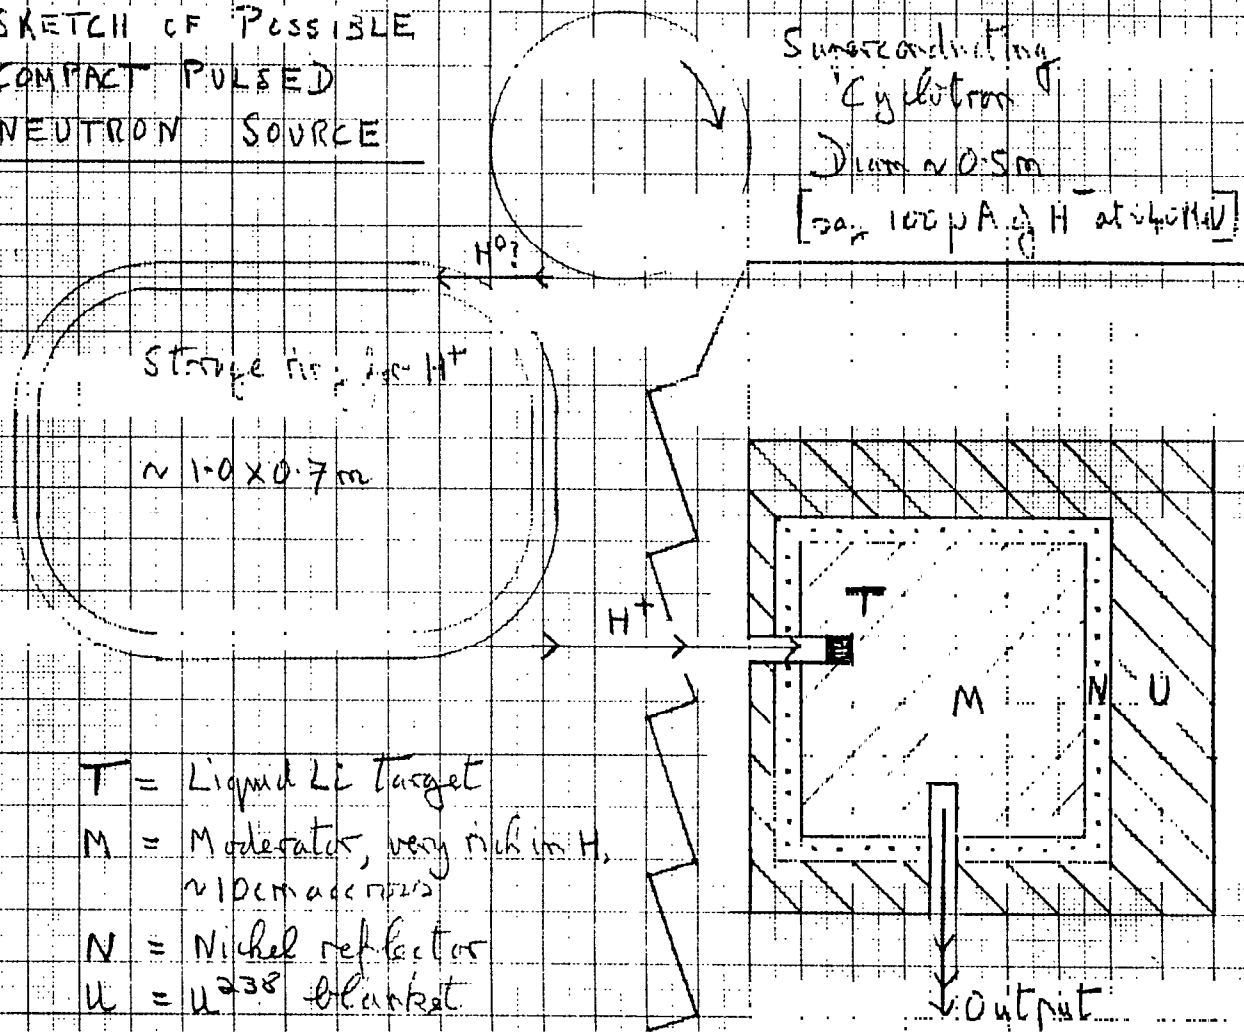 SKETCH OF POSSIBLE
COMPACT PULSED
NEUTRON SOURCE
Superconducting
Cyclotron
Diam ~ 0.5m
[say 100 μA of H⁻ at ~40 MeV]
H⁰?
Storage ring for H⁺
~ 1.0 x 0.7 m
H⁺
T
M
N
U
T = Liquid Li Target
M = Moderator, very rich in H,
~10cm across
N = Nickel reflector
U = U²³⁸ blanket
Output